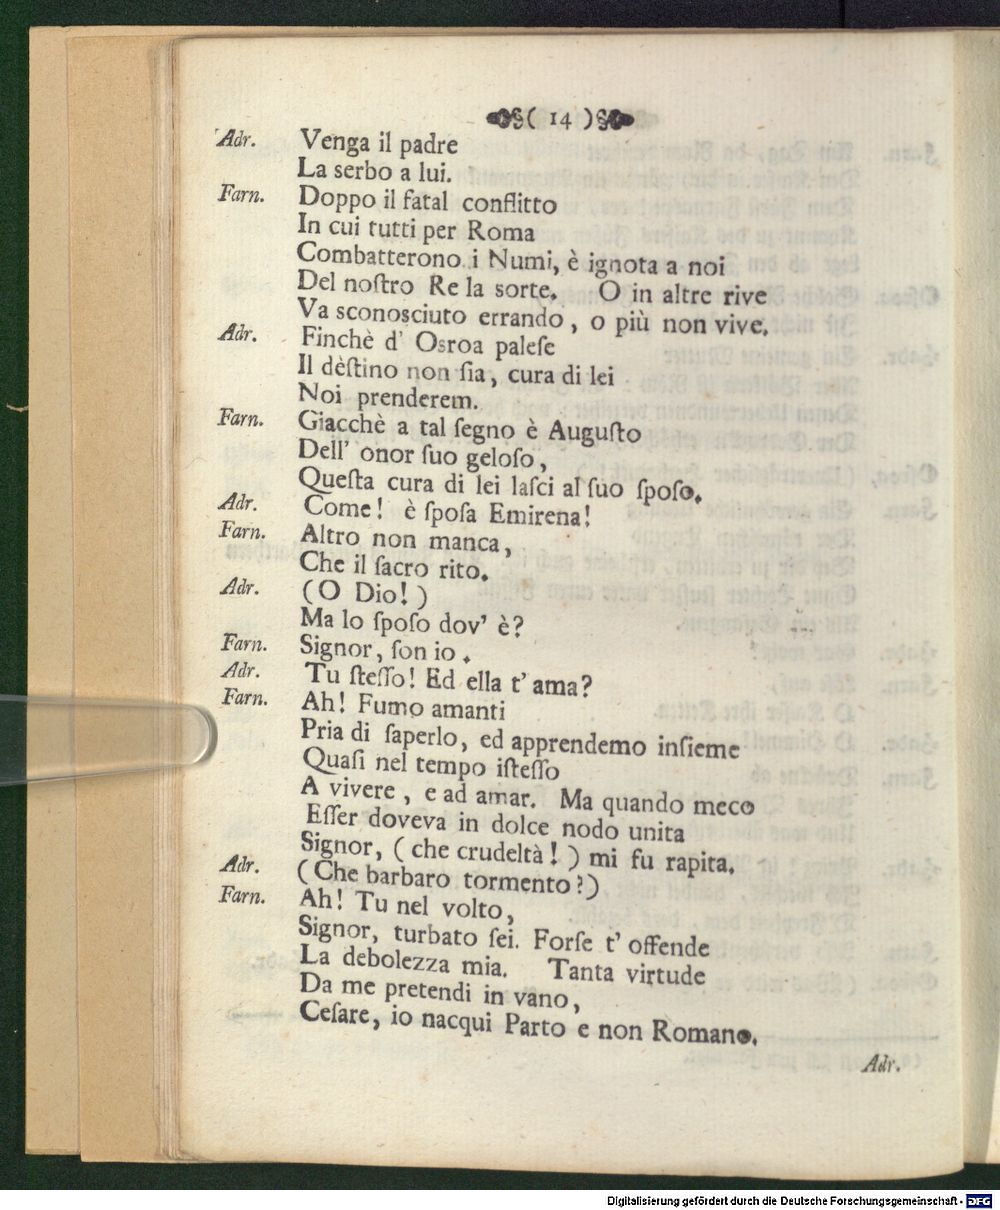 ( 14 )
Adr. Venga il padre
La serbo a lui.
Farn. Doppo il fatal conflitto
In cui tutti per Roma
Combatterono i Numi, è ignota a noi
Del noſtro Re la sorte. O in altre rive
Va sconosciuto errando, o più non vive.
Adr. Finchè d' Osroa paleſe
Il dèſtino non ſia, cura di lei
Noi prenderem.
Farn. Giacchè a tal ſegno è Auguſto
Dell' onor ſuo geloſo,
Queſta cura di lei laſci al ſuo ſpoſo.
Adr. Come! è ſpoſa Emirena!
Farn. Altro non manca,
Che il ſacro rito.
Adr. (O Dio!)
Ma lo ſpoſo dov' è?
Farn. Signor, ſon io.
Adr. Tu ſteſſo! Ed ella t' ama?
Farn. Ah! Fumo amanti
Pria di ſaperlo, ed apprendemo inſieme
Quaſi nel tempo iſteſſo
A vivere, e ad amar. Ma quando meco
Eſſer doveva in dolce nodo unita
Signor, (che crudeltà!) mi fu rapita.
Adr. (Che barbaro tormento?)
Farn. Ah! Tu nel volto,
Signor, turbato ſei. Forſe t' offende
La debolezza mia. Tanta virtude
Da me pretendi in vano,
Ceſare, io nacqui Parto e non Romano.
Adr.
Digitalisierung gefördert durch die Deutsche Forschungsgemeinschaft - DFG